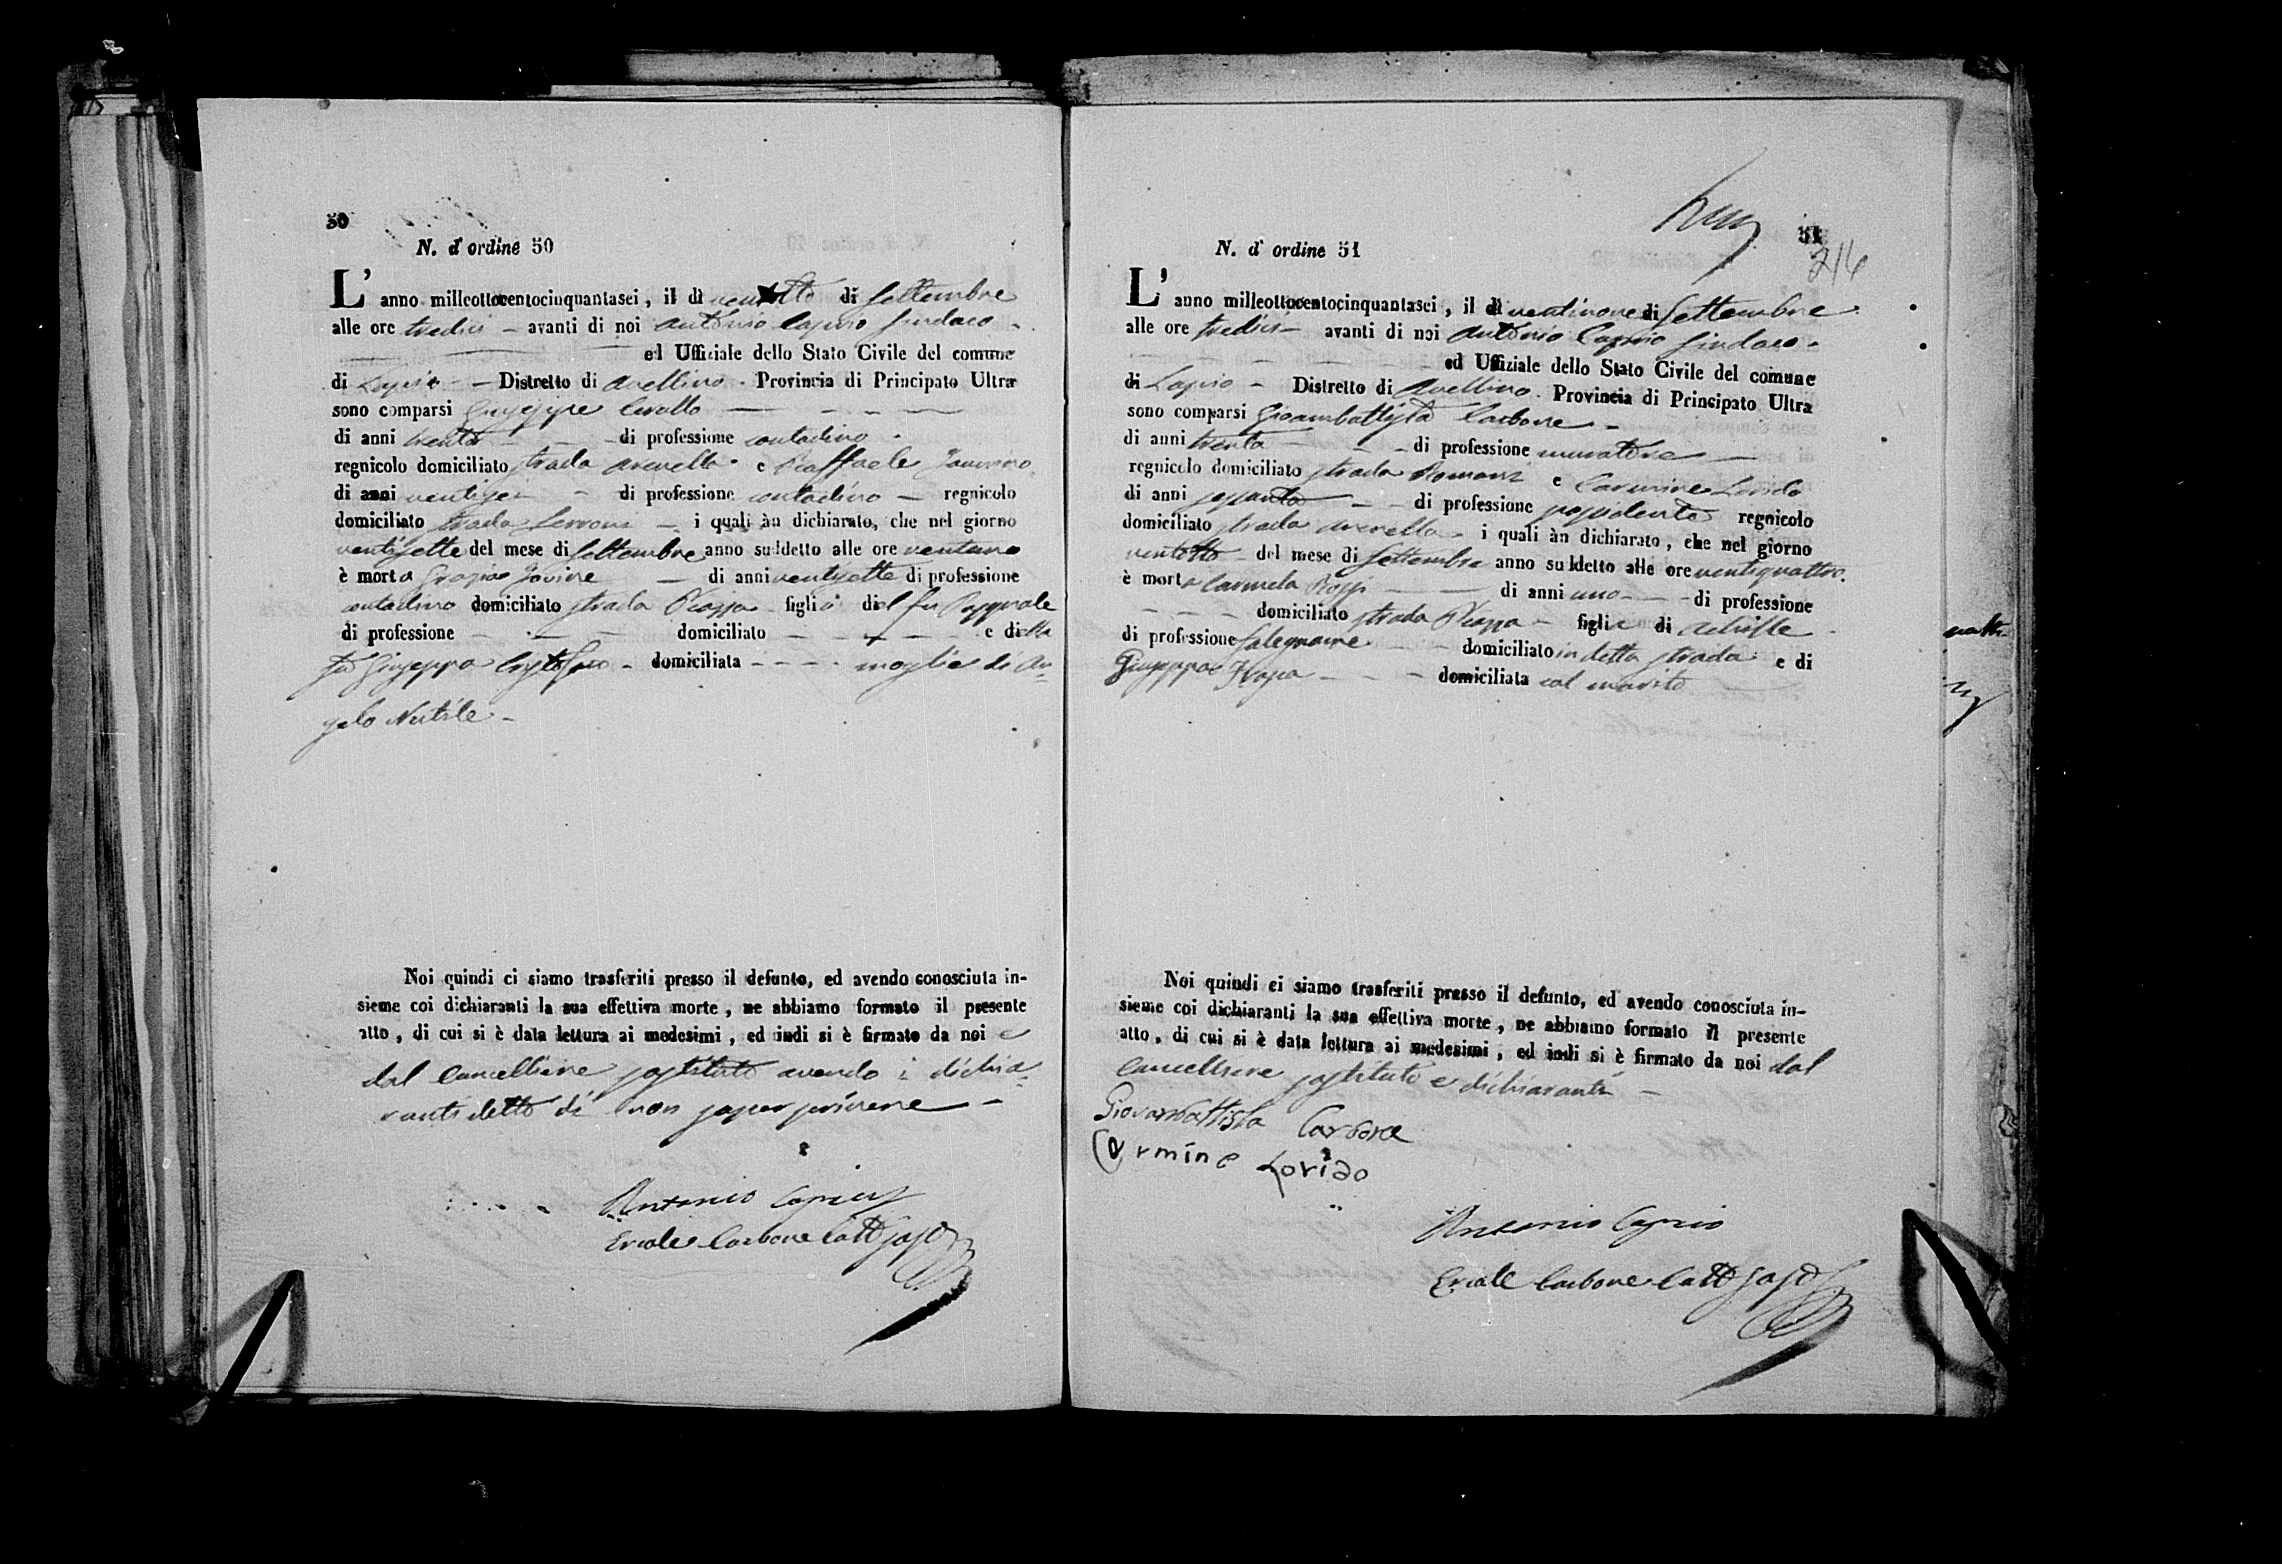 50
N. d'ordine 50
L' anno milleottocentocinquantasei, il dì ventotto di Settembre
alle ore tredici avanti di noi Antonio Caprio Sindaco
ed Uffiziale dello Stato Civile del comune
di Lapio Distretto di Avellino Provincia di Principato Ultra
sono comparsi Giuseppe
di anni trenta di professione contadino
regnicolo domiciliato strada Arenella e Raffaele
di anni ventisei di professione contadino regnicolo
domiciliato strada i quali àn dichiarato, che nel giorno
ventisette del mese di Settembre anno suddetto alle ore ventuno
è morta Grazia Jovine di anni ventisette di professione
contadina domiciliato strada Piazza figlia del fu Pasquale
di professione domiciliato e della
fu Giuseppa domiciliata moglie di An-
gelo Nutile
Noi quindi ci siamo trasferiti presso il defunto, ed avendo conosciuta in-
sieme coi dichiaranti la sua effettiva morte, ne abbiamo formato il presente
atto, di cui si è data lettura ai medesimi, ed indi si è firmato da noi e
dal Cancelliere sostituto avendo i dichia-
ranti detto di non saper scrivere
Antonio Caprio
Ercole Carbone Canc Sost
51
216
N. d'ordine 51
L' anno milleottocentocinquantasei, il dì ventinove di Settembre
alle ore tredici avanti di noi Antonio Caprio Sindaco
ed Uffiziale dello Stato Civile del comune
di Lapio Distretto di Avellino Provincia di Principato Ultra
sono comparsi Gioambattista Carbone
di anni trenta di professione muratore
regnicolo domiciliato strada Romani e Carmine Lorido
di anni sessanta di professione possidente regnicolo
domiciliato strada Arenella i quali àn dichiarato, che nel giorno
ventotto del mese di Settembre anno suddetto alle ore ventiquattro
è morta Carmela Rossi di anni uno di professione
domiciliato strada Piazza figlia di Achille
di professione falegname domiciliato in detta strada e di
Giuseppa domiciliata col marito
Noi quindi ci siamo trasferiti presso il defunto, ed avendo conosciuta in-
sieme coi dichiaranti la sua effettiva morte, ne abbiamo formato il presente
atto, di cui si è data lettura ai medesimi, ed indi si è firmato da noi dal
Cancelliere sostituto e dichiaranti
Giovanbattista Carbone
Carmine Lorido
Antonio Caprio
Ercole Carbone Canc Sost